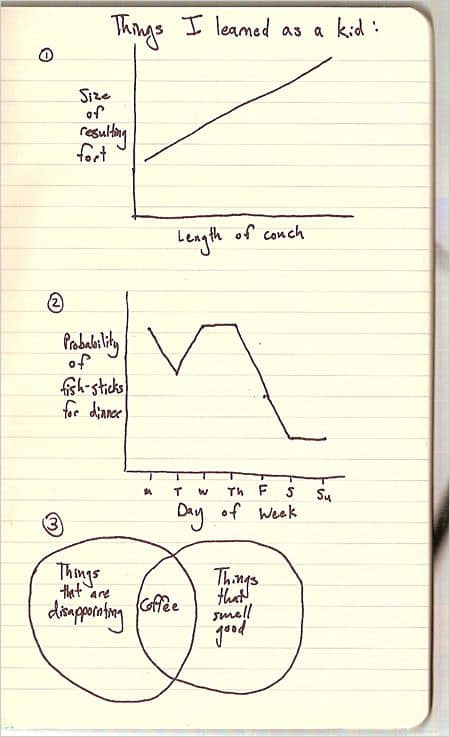 Things I learned as a kid:
1
Size
of
resulting
fort
Length of couch
2
Probability
of
fish-sticks
for dinner
M T W Th F S Su
Day of Week
3
Things
that are
disappointing
Coffee
Things
that
smell
good